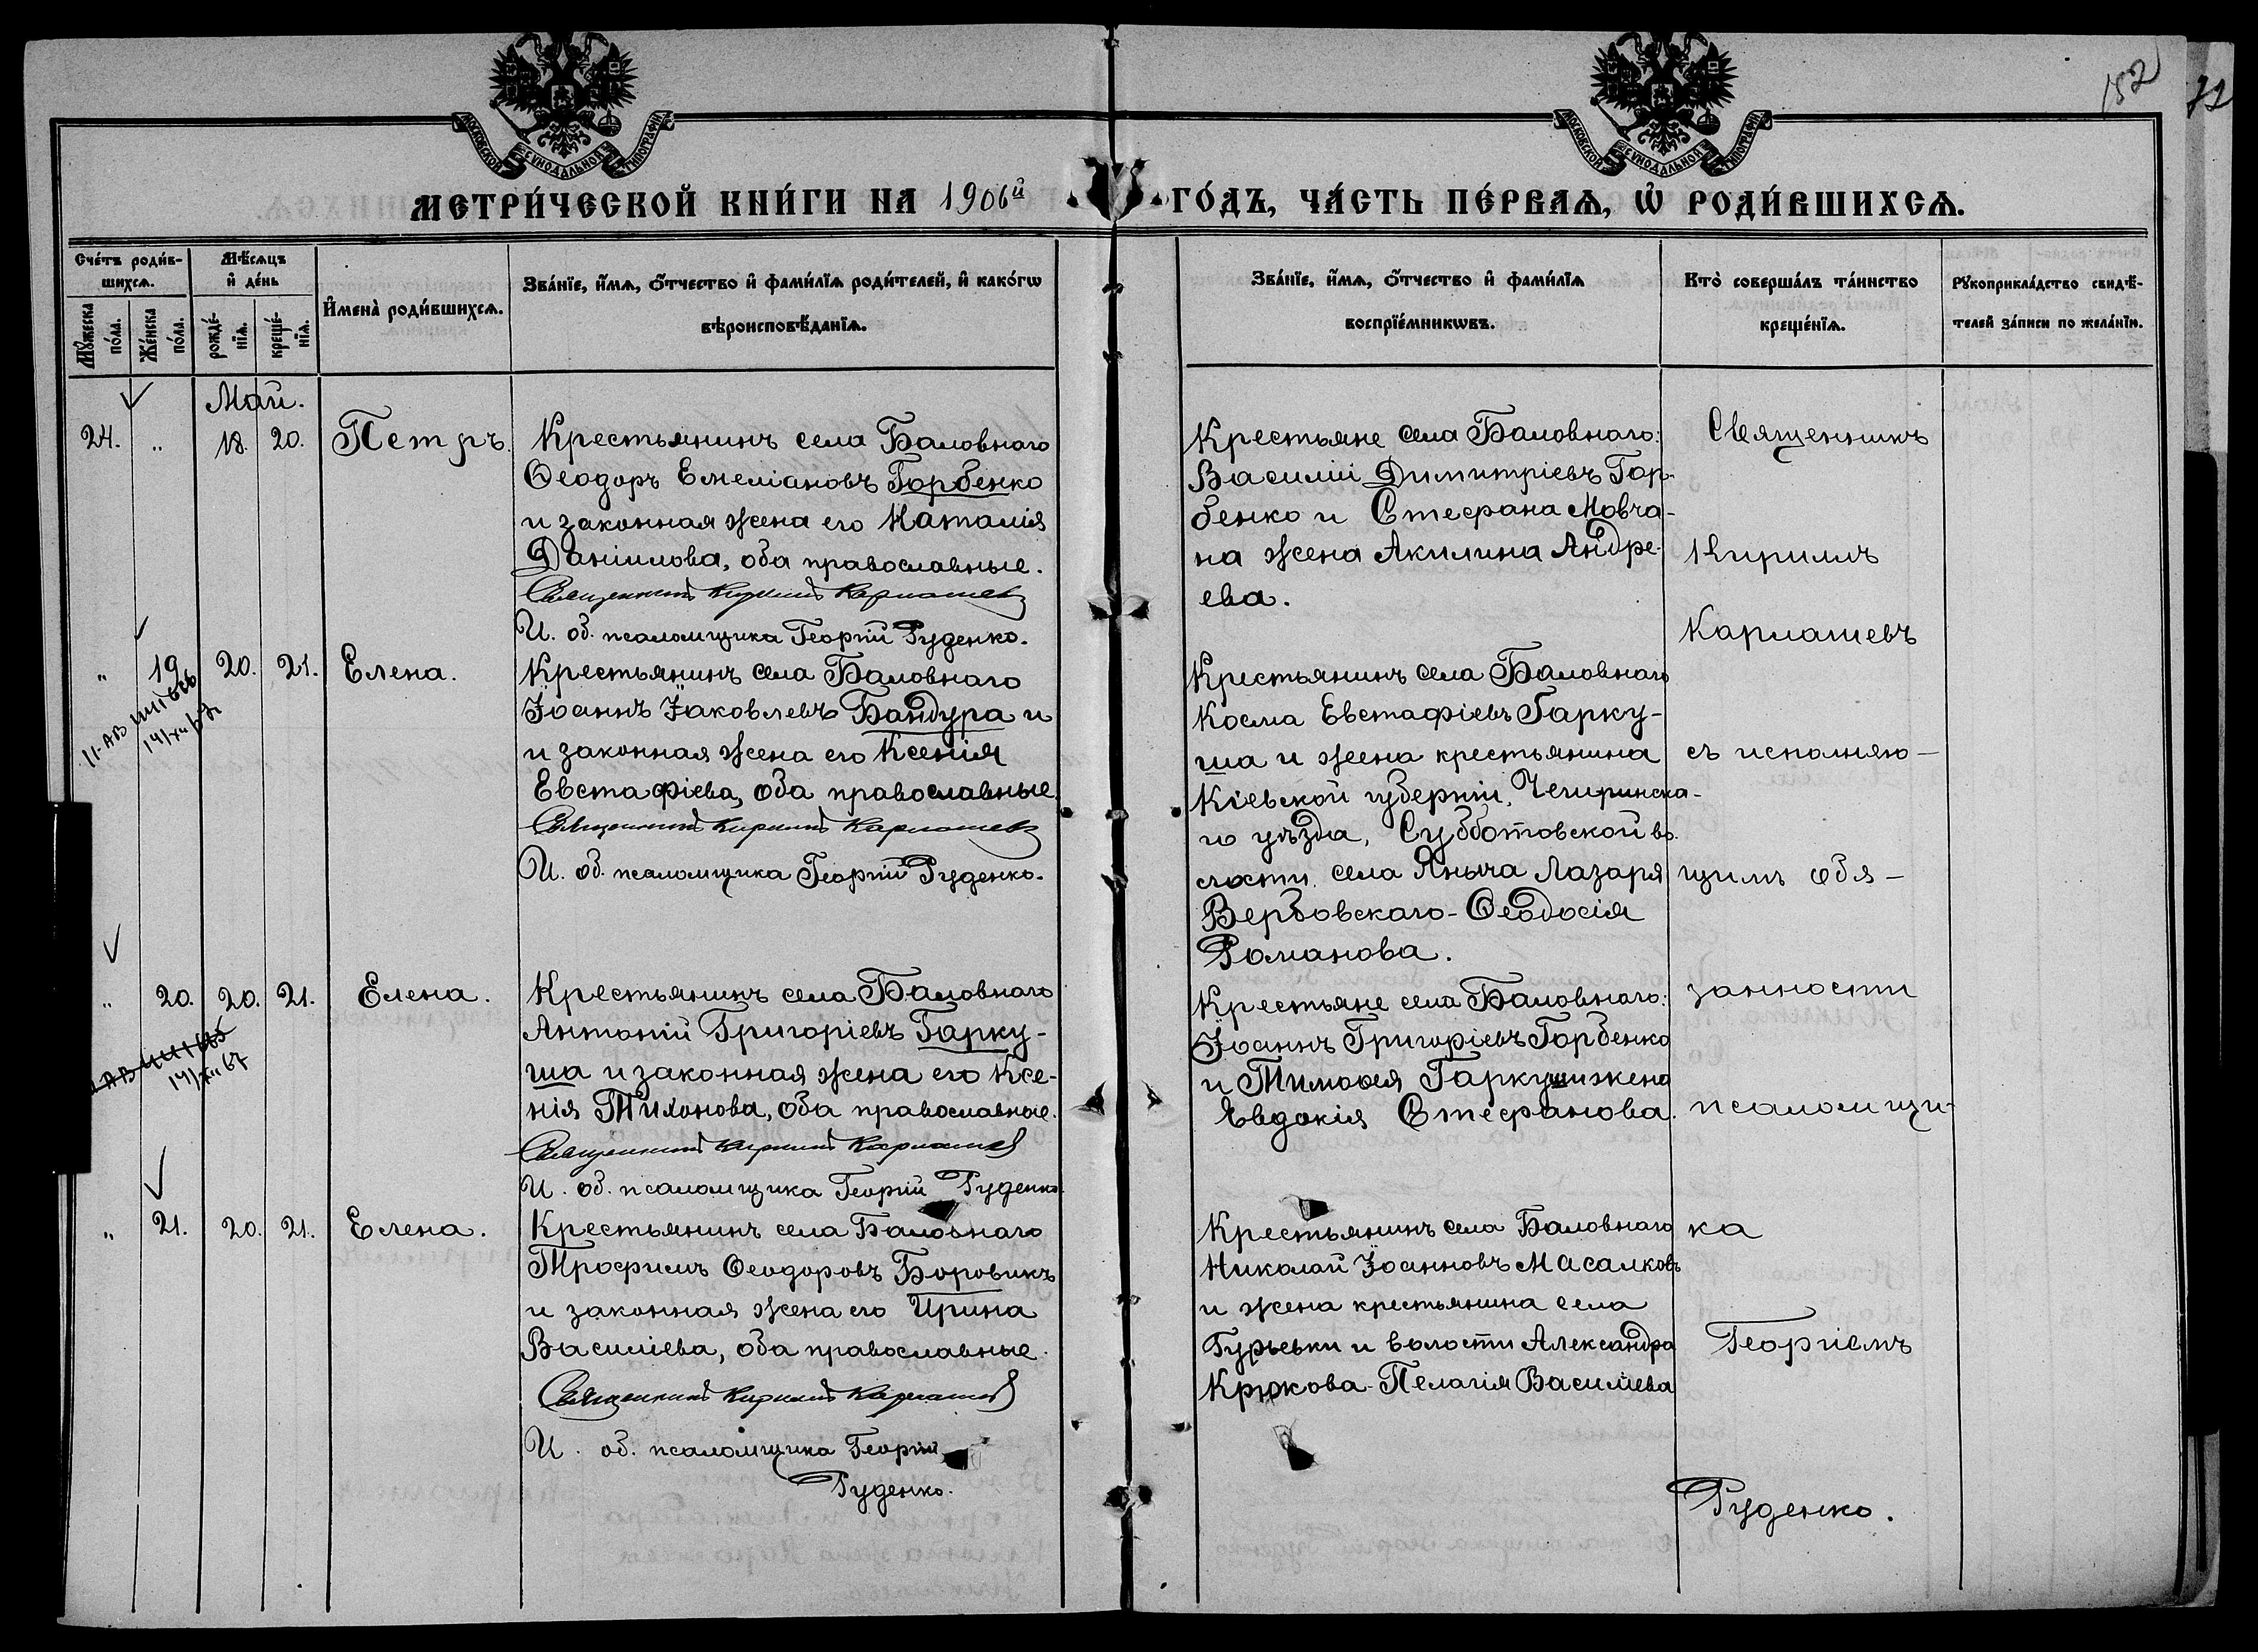 152
МОСКОВСКОЙ СУНОДАЛЬНОЙ ТИПОГРАФІИ
МОСКОВСКОЙ СУНОДАЛЬНОЙ ТИПОГРАФІИ
МЕТРИ́ЧЕСКОЙ КНИ́ГИ НА 1906й ГО́ДЪ, ЧА́СТЬ ПЕ́РВАѦ, Ѡ҆ РОДИ́ВШИХСѦ.
Сче́тъ роди́в-
шихсѧ.
Мꙋ́жеска по́ла.
Же́нска по́ла.
Мѣ́сѧцъ
и҆ де́нь
рожде́-
нїѧ.
креще́-
нїѧ.
И҆мена̀ роди́вшихсѧ.
Зва́нїе, и҆́мѧ, ѻ҆́тчество и҆ фами́лїѧ роди́телей, и҆ како́гѡ
вѣроисповѣ́данїѧ.
Зва́нїе, и҆́мѧ, ѻ҆́тчество и҆ фами́лїѧ
воспрїе́мникѡвъ.
Кто̀ соверша́лъ та́инство
креще́нїѧ.
Рꙋкоприкла́дство свидѣ́-
телей за́писи по жела́нїю.
Май.
24. " 18. 20. Петръ.
Крестьянинъ села Баловнаго
Ѳеодоръ Емеліановъ Горбенко
и законная жена его Наталія
Даніилова, оба православные.
Священникъ Кириллъ Карпашевъ
И. об. псаломщика Георгій Руденко.
Крестьяне села Баловнаго:
Василій Димитріевъ Гор-
бенко и Стефана Мовча-
на жена Акилина Андре-
ева.
" 19. 20. 21. Елена.
14/XII 67
Крестьянинъ села Баловнаго
Іоаннъ Іаковлевъ Бандура и
и законная жена его Ксенія
Евстафіева, оба православные.
Священникъ Кириллъ Карпашевъ
И. об. псаломщика Георгій Руденко.
Крестьянинъ села Баловнаго
Косма Евстафіевъ Гарку-
ша и жена крестьянина
Кіевской губерніи, Чегиринска-
го уѣзда, Субботовской во-
лости, села Яныча Лазаря
Вербовскаго - Ѳеодосія
Романова.
" 20. 20. 21. Елена.
14/XII 67
Крестьянинъ села Баловнаго
Антоній Григоріевъ Гарку-
ша и законная жена его Ксе-
нія Тихонова, оба православные.
Священникъ Кириллъ Карпашевъ
И. об. псаломщика Георгій Руденко.
Крестьяне села Баловнаго:
Іоаннъ Григоріевъ Горбенко
и Тимоѳея Гаркуши жена
Евдокія Стефанова.
" 21. 20. 21. Елена.
Крестьянинъ села Баловнаго
Трофимъ Ѳеодоровъ Боровикъ
и законная жена его Ирина
Василіева, оба православные.
Священникъ Кириллъ Карпашевъ
И. об. псаломщика Георгій
Руденко.
Крестьянинъ села Баловнаго
Николай Іоанновъ Масалковъ
и жена крестьянина села
Гурьевки и волости Александра
Крюкова - Пелагія Василіева
Священникъ
Кириллъ
Карпашевъ
съ исполняю-
щимъ обя-
занности
псаломщи-
ка
Георгіемъ
Руденко.